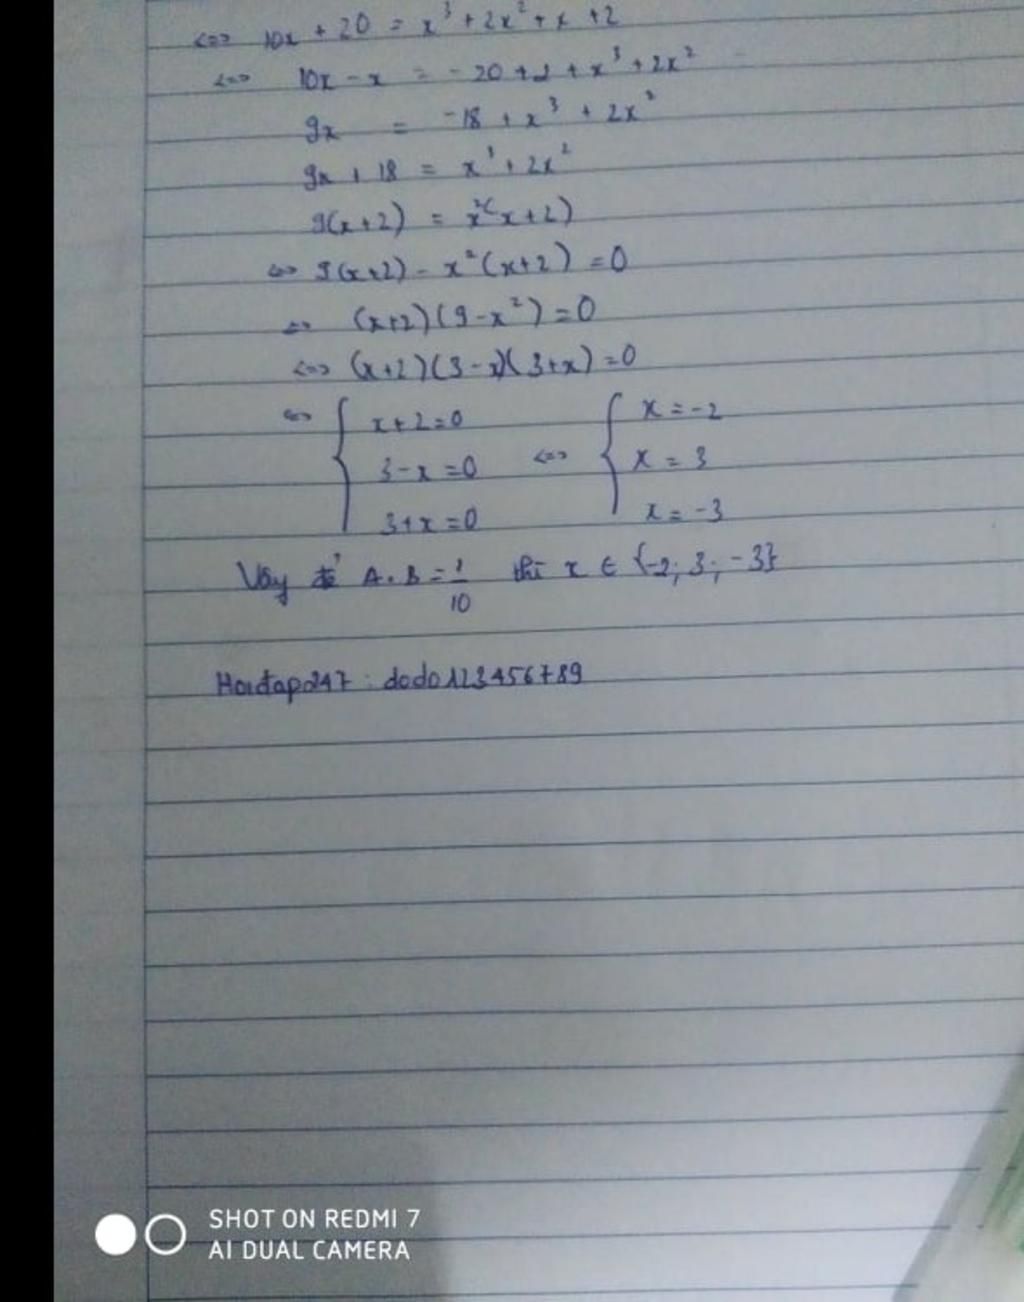 <=> 10x + 20 = x³ + 2x² + x + 2
<=> 10x - x = -20 + 2 + x³ + 2x²
9x = -18 + x³ + 2x²
9x + 18 = x³ + 2x²
9(x+2) = x²(x+2)
<=> 9(x+2) - x²(x+2) = 0
<=> (x+2)(9-x²) = 0
<=> (x+2)(3-x)(3+x) = 0
<=> { x+2=0 <=> { x = -2
3-x=0 x = 3
3+x=0 x = -3
Vậy để A.B = 1/10 thì x ∈ {-2; 3; -3}
Hoidap247: dodo123456789
SHOT ON REDMI 7
AI DUAL CAMERA